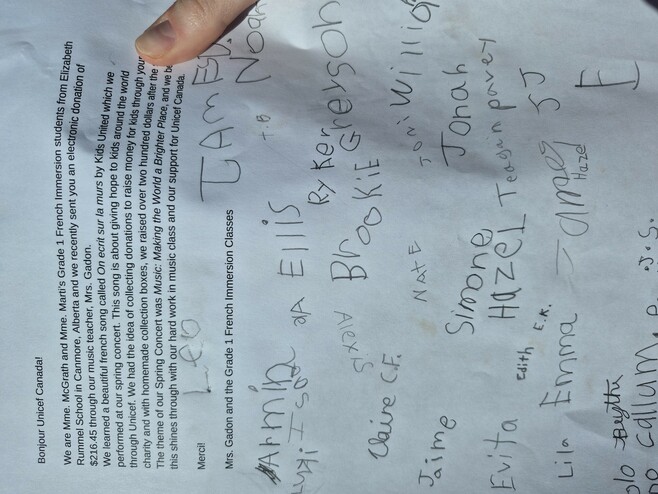 Bonjour Unicef Canada!
We are Mme. McGrath and Mme. Marti's Grade 1 French Immersion students from Elizabeth
Rummel School in Canmore, Alberta and we recently sent you an electronic donation of
$216.45 through our music teacher, Mrs. Gadon.
We learned a beautiful french song called On ecrit sur la murs by Kids United which we
performed at our spring concert. This song is about giving hope to kids around the world
through Unicef. We had the idea of collecting donations to raise money for kids through your
charity and with homemade collection boxes, we raised over two hundred dollars after the
The theme of our Spring Concert was Music: Making the World a Brighter Place, and we
this shines through with our hard work in music class and our support for Unicef Canada.
Merci!
Leo
Mrs. Gadon and the Grade 1 French Immersion Classes
Noah
T.B
Armin
Ellis
Ryker
Greyson
Brookie
Alexis
Claire C.F.
Nate
Joni
Jonah
Simone
Hazel
Teagan
Jaime
Evita
Edith
E.K.
JJ
James
Hazel
E
Lila
Emma
Callum
J.S.